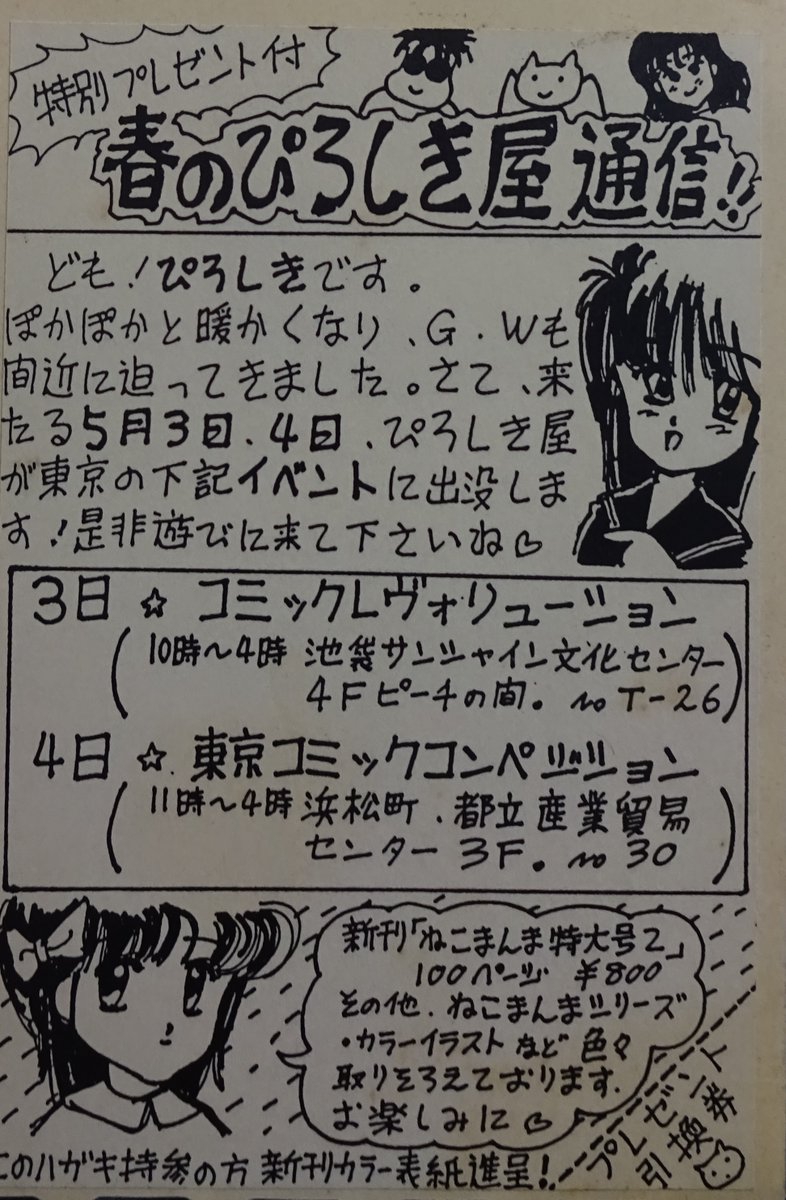 特別プレゼント付
春のぴろしき屋通信!!
ども!ぴろしきです。
ぽかぽかと暖かくなり、G.Wも
間近に迫ってきました。さて、来
たる5月3日、4日、ぴろしき屋
が東京の下記イベントに出没しま
す!是非遊びに来て下さいね♡
3日 ☆ コミックレヴォリューション
(10時〜4時 池袋サンシャイン文化センター
4Fピーチの間。no T-26)
4日 ☆ 東京コミックコンペジション
(11時〜4時 浜松町、都立産業貿易
センター 3F。no 30)
新刊「ねこまんま特大号2」
100ページ ¥800
その他、ねこまんまシリーズ
・カラーイラストなど色々
取りそろえております。
お楽しみに♡
プレゼント
引換券
このハガキ持参の方 新刊カラー表紙進呈!